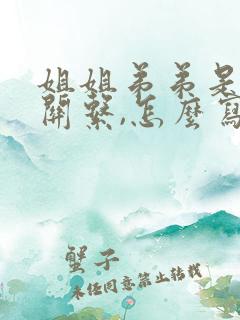 姐姐弟弟是
關繫,怎麼寫
蟹子
未經同意禁止轉載